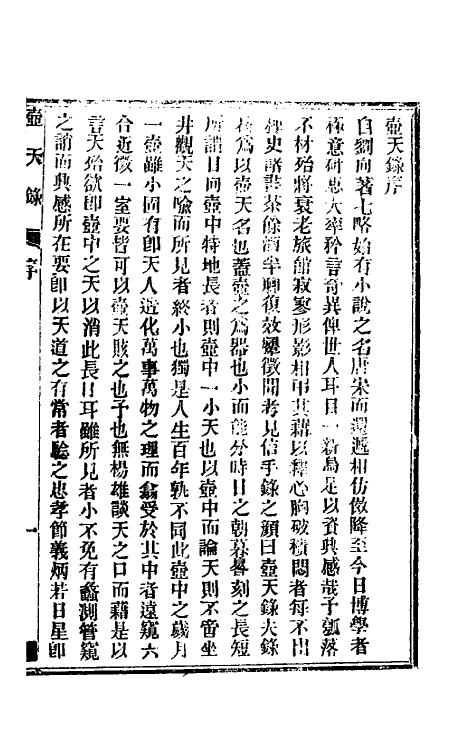 壺天錄序
自劉向著七略始有小說之名唐宋而還遞相仿傚降至今日博學者
極意研思大率矜言奇異俾世人耳目一新烏足以資典感哉予瓠落
不材殆將衰老旅館寂寥形影相弔其藉以釋心胸破積悶者每不出
稗史諸書茶餘酒半輒復效顰徵聞考見信手錄之顏曰壺天錄夫錄
名以壺天名也蓋壺之為器也小而能分時日之朝暮晷刻之長短
所謂日向壺中特地長者則壺中一小天也以壺中而論天則不啻坐
井觀天之喻而所見者終小也獨是人生百年孰不同此壺中之歲月
一壺雖小固有即天人造化萬事萬物之理而翕受於其中者遠窺六
合近徵一室要皆可以壺天賅之也予也無楊雄談天之口而藉是以
言天殆欲即壺中之天以消此長日耳雖所見者小不免有蠡測管窺
之誚而典感所在要即以天道之有常者驗之忠孝節義炳若日星即
壺天錄 序 一